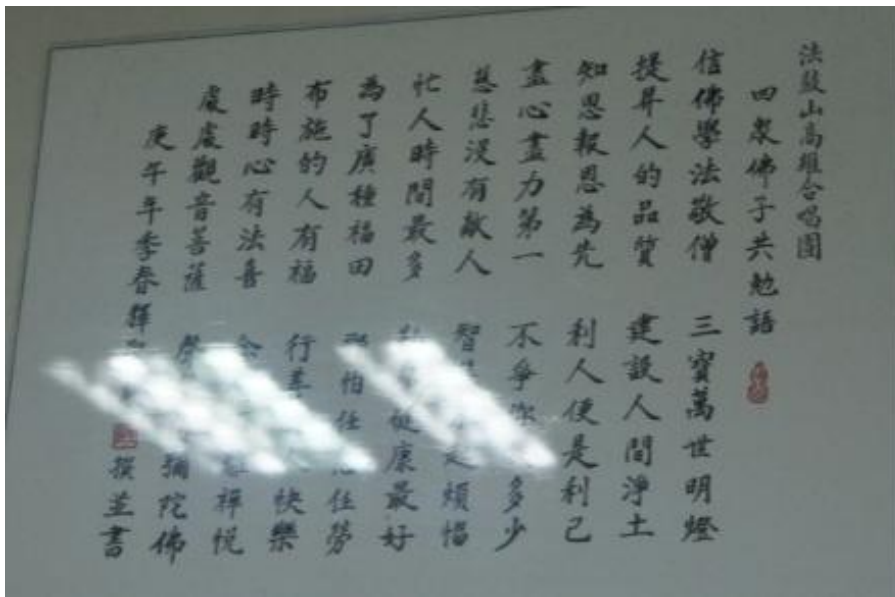 法鼓山高雄合唱團
四眾佛子共勉語
信佛學法敬僧 三寶萬世明燈
提昇人的品質 建設人間淨土
知恩報恩為先 利人便是利己
盡心盡力第一 不爭 多少
慈悲沒有敵人 智 是煩惱
忙人時間最多 健康最好
為了廣種福田 怕任 任勞
布施的人有福 行 快樂
時時心有法喜 念 禪悅
處處觀音菩薩 聲 彌陀佛
庚午年季春 撰並書